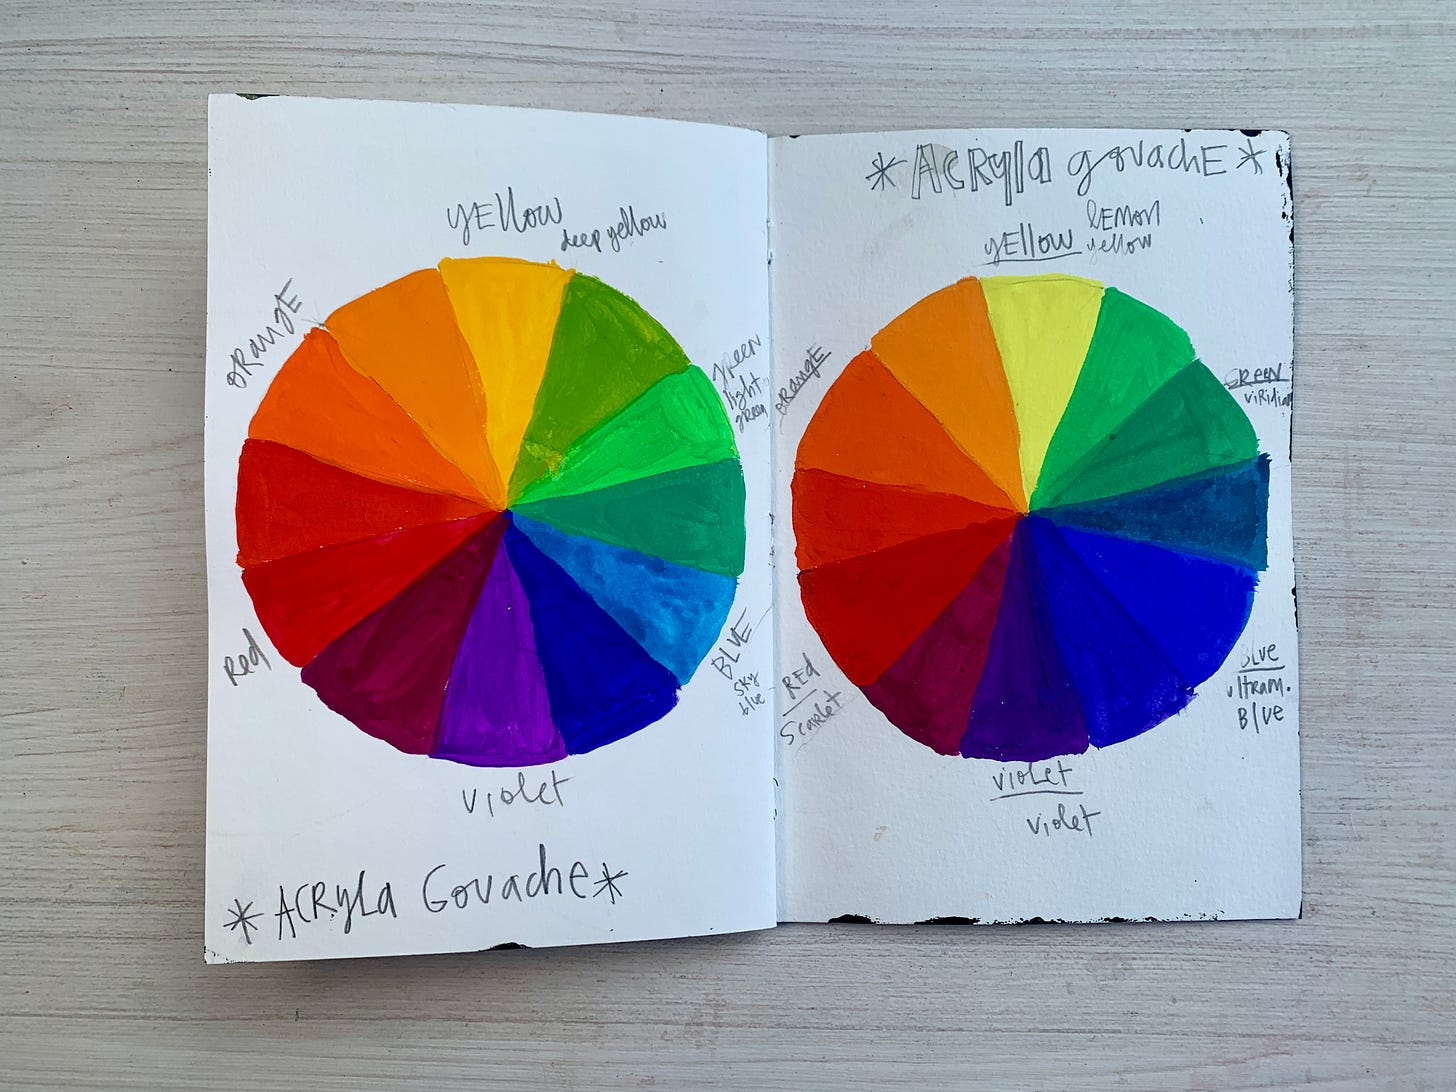 yEllow
deep yellow
oRangE
green
light
green
BLUE
sky
blue
Red
violet
* ACRyLa Gouache *
* ACRyla gouachE *
yEllow
lEmon
yellow
orangE
GREEN
viRidian
BLUE
ultRam.
Blue
REd
Scarlet
violet
violet